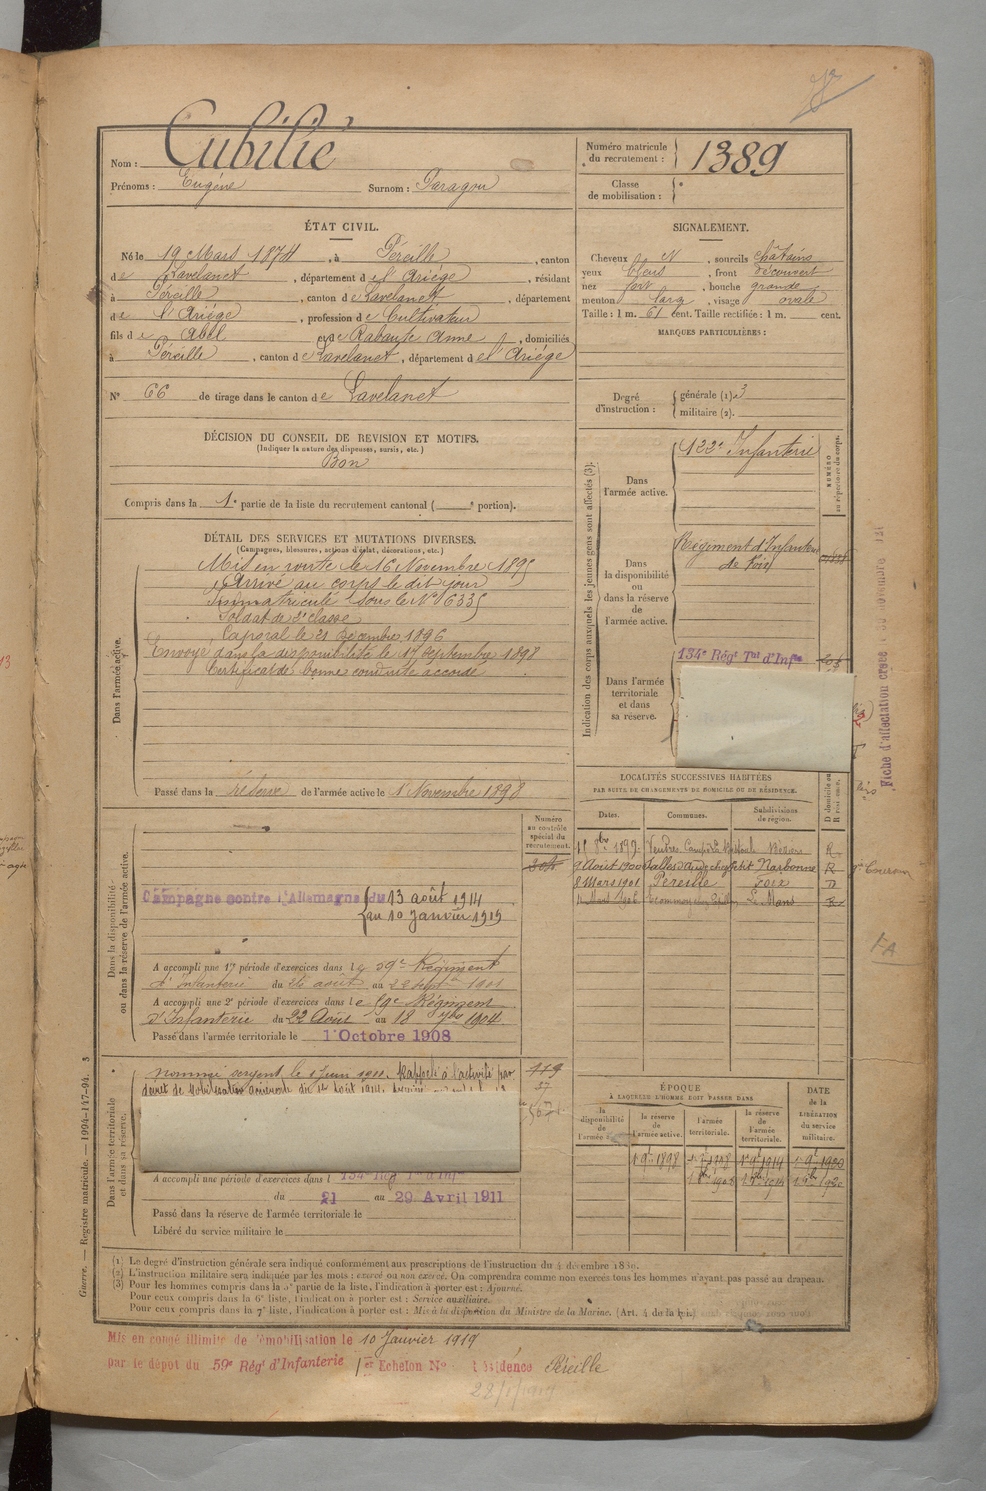 Nom : Cubilié
Prénoms : Eugène Surnom : Paragou
Numéro matricule du recrutement : 1389
Classe de mobilisation :
ÉTAT CIVIL.
Né le 19 Mars 1874, à Péreille, canton
de Lavelanet, département de l'Ariège, résidant
à Péreille, canton de Lavelanet, département
de l'Ariège, profession de Cultivateur
fils de Abel et de Rabaute Anne, domiciliés
à Péreille, canton de Lavelanet, département de l'Ariège
N° 66 de tirage dans le canton de Lavelanet
SIGNALEMENT.
Cheveux N, sourcils châtains
yeux bleus, front découvert
nez fort, bouche grande
menton large, visage ovale
Taille : 1 m. 61 cent. Taille rectifiée : 1 m. cent.
MARQUES PARTICULIÈRES :
Degré d'instruction : générale (1) 3
militaire (2).
DÉCISION DU CONSEIL DE REVISION ET MOTIFS.
(Indiquer la nature des dispenses, sursis, etc.)
Bon
Compris dans la 1e partie de la liste du recrutement cantonal ( e portion).
DÉTAIL DES SERVICES ET MUTATIONS DIVERSES.
(Campagnes, blessures, actions d'éclat, décorations, etc.)
Dans l'armée active.
Mis en route le 16 Novembre 1895
Arrivé au corps le dit jour
Immatriculé sous le N° 6335
Soldat de 2e classe
Caporal le 21 Décembre 1896
Envoyé dans la disponibilité le 17 Septembre 1898
Certificat de bonne conduite accordé
Passé dans la réserve de l'armée active le 1 Novembre 1898
Indication des corps auxquels les jeunes gens sont affectés (3).
Dans l'armée active. 122e Infanterie
NUMÉRO au répertoire du corps.
Dans la disponibilité ou dans la réserve de l'armée active. Régiment d'Infanterie de Foix
Dans l'armée territoriale et dans sa réserve. 134e Régt Tal d'Infie
Fiche d'affectation créée
LOCALITÉS SUCCESSIVES HABITÉES
PAR SUITE DE CHANGEMENTS DE DOMICILE OU DE RÉSIDENCE.
Dates. Communes. Subdivisions de région. D domicile ou R résidence.
8bre 1899 Vendres Béziers R
9 Août 1900 Narbonne R
8 Mars 1901 Péreille Foix D
Le Mans R
Dans la disponibilité ou dans la réserve de l'armée active.
Numéro au contrôle spécial du recrutement.
Campagne contre l'Allemagne du 13 août 1914
au 10 Janvier 1919
A accompli une 1re période d'exercices dans le 59e Régiment
d'Infanterie du 26 août au 22 septbre 1901
A accompli une 2e période d'exercices dans le 59e Régiment
d'Infanterie du 22 Août au 18 7bre 1904
Passé dans l'armée territoriale le 1 Octobre 1908
Dans l'armée territoriale et dans sa réserve.
nommé sergent le 1 Juin 1911. Rappelé à l'activité par
décret de Mobilisation générale du 1er août 1914.
A accompli une période d'exercices dans l 134e Rég Tal d'Inf
du 21 au 29 Avril 1911
Passé dans la réserve de l'armée territoriale le
Libéré du service militaire le
ÉPOQUE
À LAQUELLE L'HOMME DOIT PASSER DANS
la disponibilité de l'armée active. la réserve de l'armée active. l'armée territoriale. la réserve de l'armée territoriale.
DATE de la LIBÉRATION du service militaire.
(1) Le degré d'instruction générale sera indiqué conformément aux prescriptions de l'instruction du 4 décembre 1889.
(2) L'instruction militaire sera indiquée par les mots : exercé ou non exercé. On comprendra comme non exercés tous les hommes n'ayant pas passé au drapeau.
(3) Pour les hommes compris dans la 5e partie de la liste, l'indication à porter est : Ajourné.
Pour ceux compris dans la 6e liste, l'indication à porter est : Service auxiliaire.
Pour ceux compris dans la 7e liste, l'indication à porter est : Mis à la disposition du Ministre de la Marine. (Art. 4 de la loi.)
Guerre. — Registre matricule. — 1994-147-94. 3
Mis en congé illimité de démobilisation le 10 Janvier 1919
par le dépôt du 59e Régt d'Infanterie 1er Echelon N° Résidence Péreille